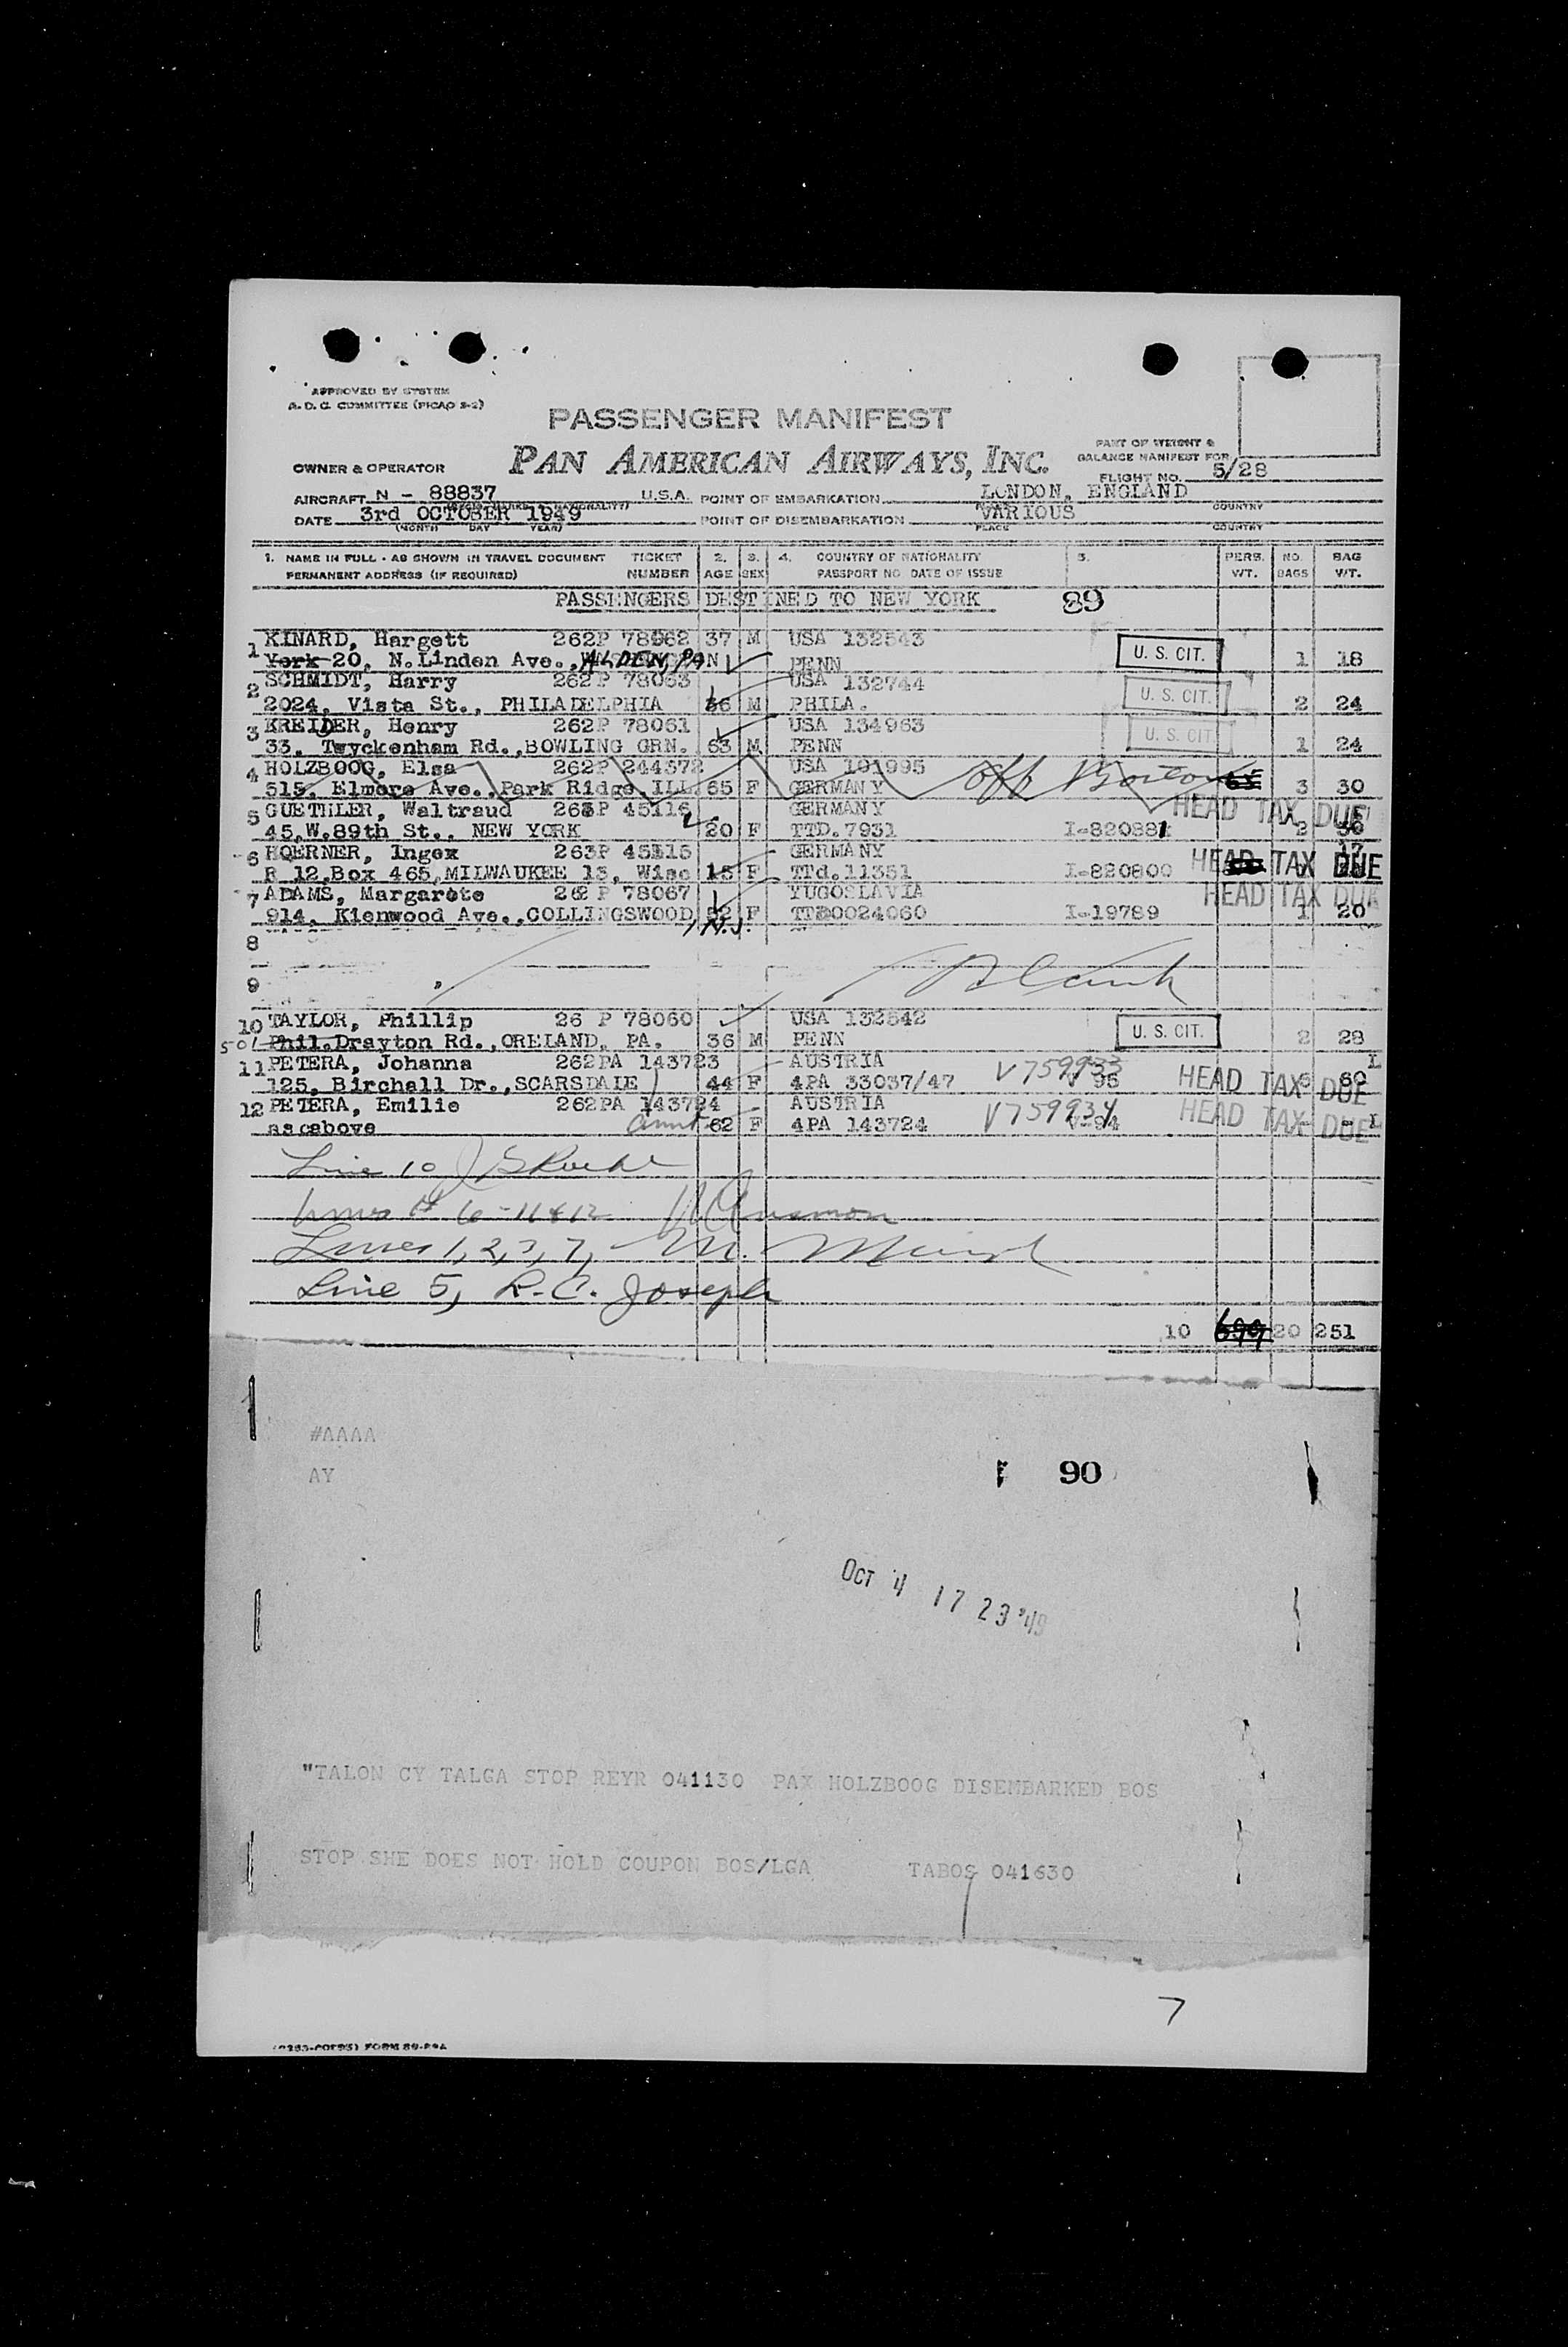 APPROVED BY SYSTEM
A. D. C. COMMITTEE (PICAO S-2)
PASSENGER MANIFEST
PAN AMERICAN AIRWAYS, INC.
OWNER & OPERATOR
PART OF WEIGHT &
BALANCE MANIFEST FOR
FLIGHT NO. 5/28
AIRCRAFT N - 88837 U.S.A. POINT OF EMBARKATION LONDON, ENGLAND
DATE 3rd OCTOBER 1949 POINT OF DISEMBARKATION VARIOUS
(MONTH DAY YEAR) PLACE COUNTRY
1. NAME IN FULL - AS SHOWN IN TRAVEL DOCUMENT TICKET 2. 3. 4. COUNTRY OF NATIONALITY 5. PERS. NO. BAG
PERMANENT ADDRESS (IF REQUIRED) NUMBER AGE SEX PASSPORT NO DATE OF ISSUE WT. BAGS WT.
PASSENGERS DESTINED TO NEW YORK 89
1 KINARD, Hargett 262P 78062 37 M USA 132543
York 20, N.Linden Ave., ALDEN, PA PENN U. S. CIT. 1 18
2 SCHMIDT, Harry 262P 78063 USA 132744
2024, Vista St., PHILADELPHIA 36 M PHILA. U. S. CIT. 2 24
3 KREIDER, Henry 262P 78061 USA 134963
33, Twyckenham Rd.,BOWLING GRN. 63 M PENN U. S. CIT. 1 24
4 HOLZBOOG, Elsa 262P 244372 USA 101995
515, Elmore Ave., Park Ridge, ILL 65 F GERMANY off Boston 3 30
5 GUETHLER, Waltraud 263P 45116 GERMANY HEAD TAX DUE
45,W.89th St., NEW YORK 20 F TTD.7931 I-820881 2
6 HOERNER, Ingex 263P 45115 GERMANY
R 12,Box 465,MILWAUKEE 13, Wisc 15 F TTd.11351 I-820800 HEAD TAX DUE
7 ADAMS, Margarete 262P 78067 YUGOSLAVIA HEAD TAX DUE
914, Kienwood Ave.,COLLINGSWOOD, N.J. 52 F 0024060 I-19789 1 20
8
9 Blank
10 TAYLOR, Phillip 26 P 78060 USA 132542
501 Phil.Drayton Rd.,ORELAND, PA. 36 M PENN U. S. CIT. 2 28
11 PETERA, Johanna 262PA 143723 AUSTRIA V759933 L
125, Birchall Dr.,SCARSDALE 44 F 4PA 33037/47 V 95 HEAD TAX DUE 60
12 PETERA, Emilie 262PA 143724 AUSTRIA V759934
as above aunt 62 F 4PA 143724 HEAD TAX DUE L
Line 10
Lines # 6-11 & 12
Lines 1, 2, 3, 7, M.
Line 5, R. C. Joseph
10 699 20 251
#AAAA
AY
90
OCT 4 17 23 '49
"TALON CY TALGA STOP REYR 041130 PAX HOLZBOOG DISEMBARKED BOS
STOP SHE DOES NOT HOLD COUPON BOS/LGA TABOS 041630
7